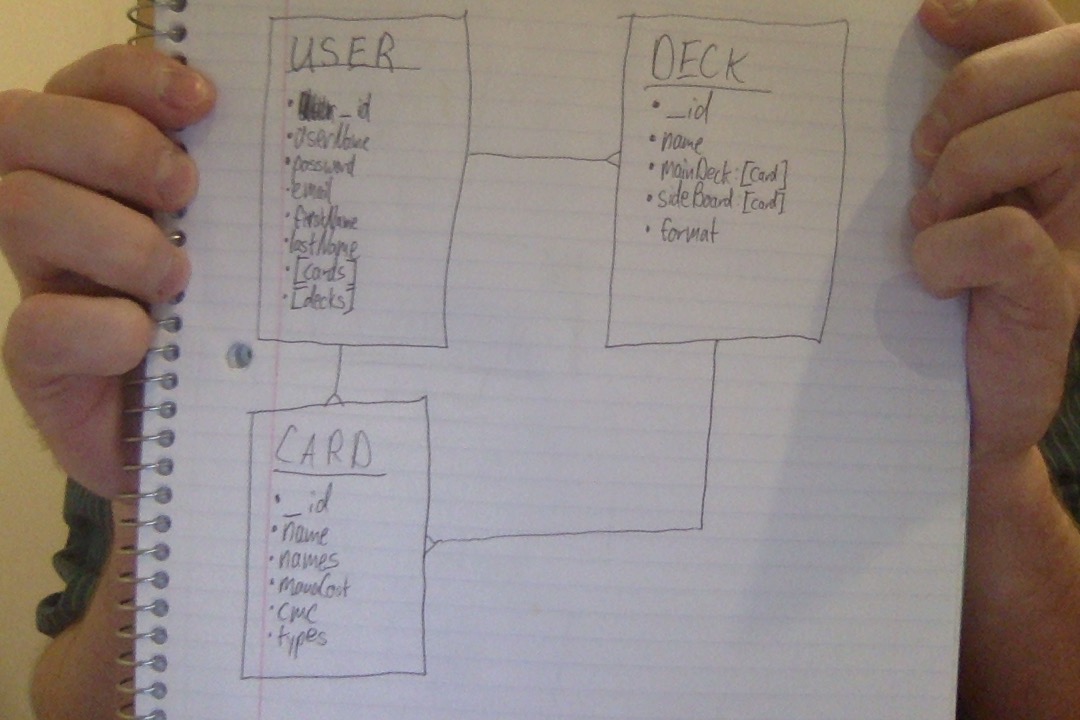 USER
• _id
• userName
• password
• email
• firstName
• lastName
• [cards]
• [decks]
DECK
• _id
• name
• mainDeck: [card]
• sideBoard: [card]
• format
CARD
• _id
• name
• names
• manaCost
• cmc
• types